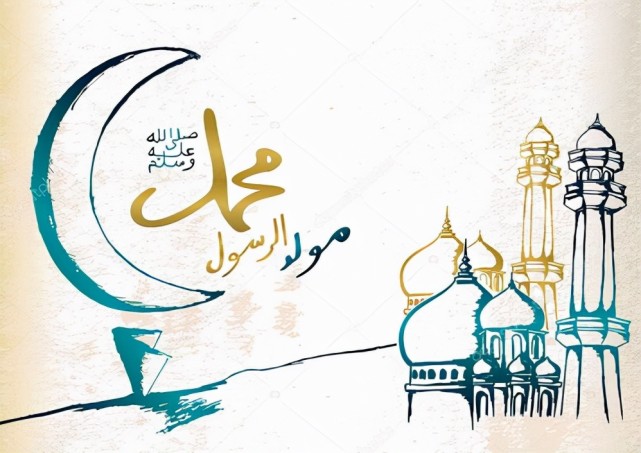 صلى الله
عليه
وسلم
محمد
مولد الرسول